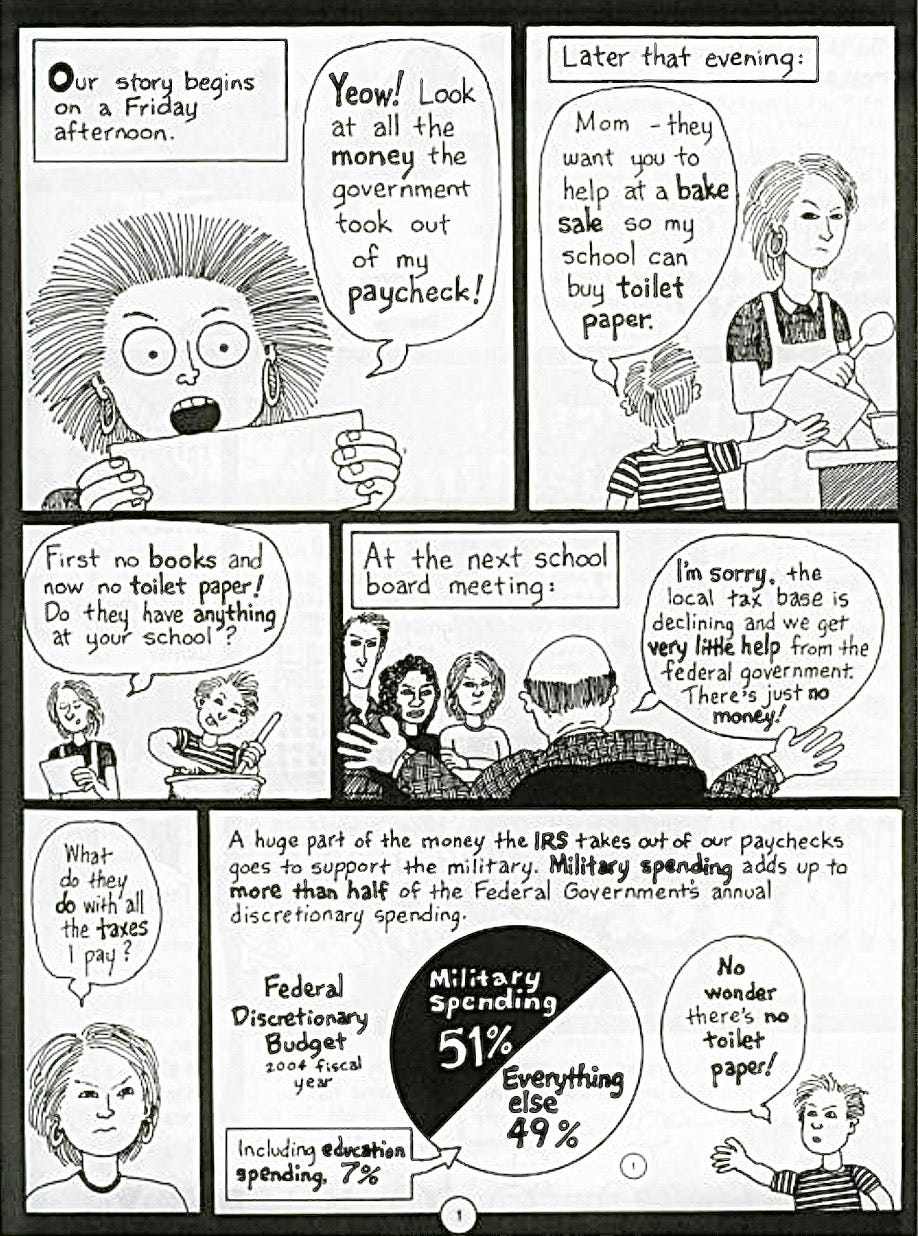 Our story begins
on a Friday
afternoon.
Yeow! Look
at all the
money the
government
took out
of my
paycheck!
Later that evening:
Mom - they
want you to
help at a bake
sale so my
school can
buy toilet
paper.
First no books and
now no toilet paper!
Do they have anything
at your school?
At the next school
board meeting:
I'm sorry, the
local tax base is
declining and we get
very little help from the
federal government.
There's just no
money!
What
do they
do with all
the taxes
I pay?
A huge part of the money the IRS takes out of our paychecks
goes to support the military. Military spending adds up to
more than half of the Federal Government's annual
discretionary spending.
Federal
Discretionary
Budget
2004 fiscal
year
Military
Spending
51%
Everything
else
49%
Including education
spending, 7%
No
wonder
there's no
toilet
paper!
1
1